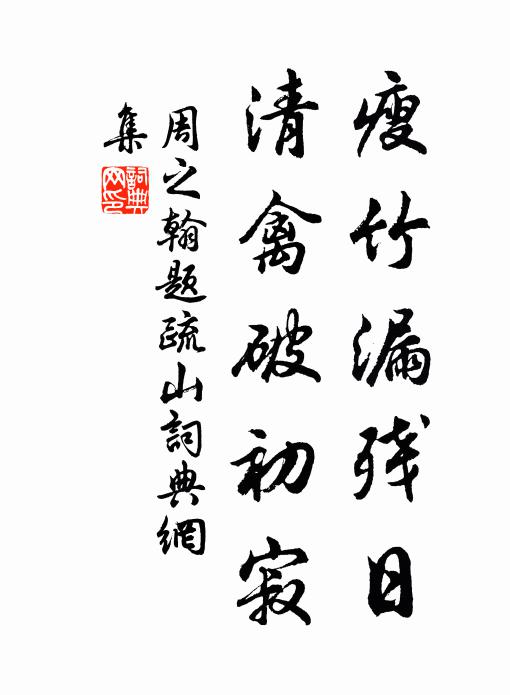 瘦竹漏残日
清禽破初寂
周之翰题疏山詞典網
集
詞典
网印